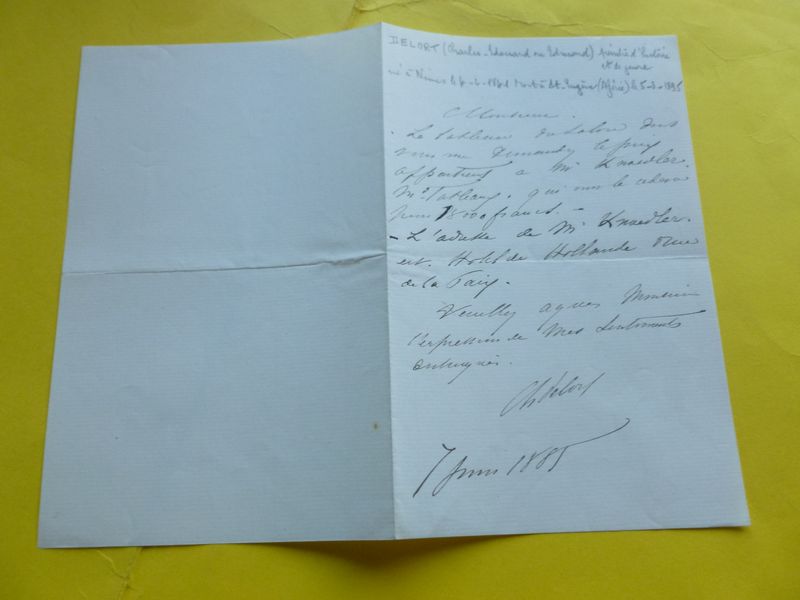 DELORT (Charles-Edouard ou Edmond) peintre d'histoire
et de genre
né à Nîmes le 4-2-1841 Mort à St-Eugène (Algérie) le 5-3-1895
Monsieur.
Le tableau du Salon dont
vous me Demandez le prix
appartient à Mr Knoedler.
Md Tableaux. qui vous le cédera
pour 18000 francs. -
- L'adresse de Mr Knoedler
est. Hotel de Hollande rue
de la Paix.
Veuillez agréer Monsieur
l'expression de mes Sentiments
distingués.
Ch Delort
7 Juin 1885